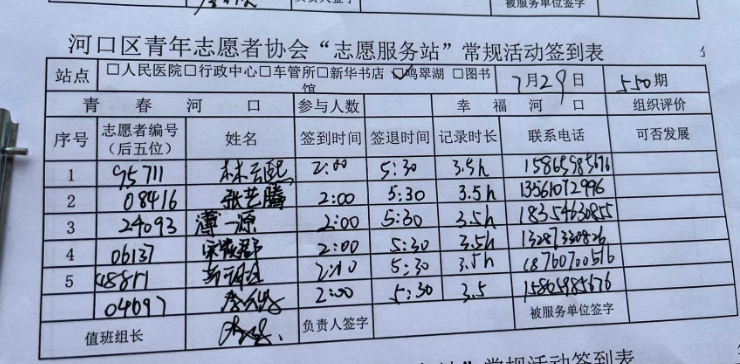 被服务单位签字
河口区青年志愿者协会“志愿服务站”常规活动签到表
站点 □人民医院□行政中心□车管所□新华书店 ☑鸣翠湖 □图书馆 7月29日 550期
青春河口 参与人数 幸福河口 组织评价
序号 志愿者编号（后五位） 姓名 签到时间 签退时间 记录时长 联系电话 可否发展
1 95711 林云熙 2:00 5:30 3.5h 15865985676
2 08416 张艺腾 2:00 5:30 3.5h 13561072996
3 24093 薄一源 2:00 5:30 3.5h 18354630855
4 06137 2:00 5:30 3.5h
5 5:30 3.5h 18760700516
04097 2:00 5:30 3.5
值班组长 负责人签字 被服务单位签字
常规活动签到表